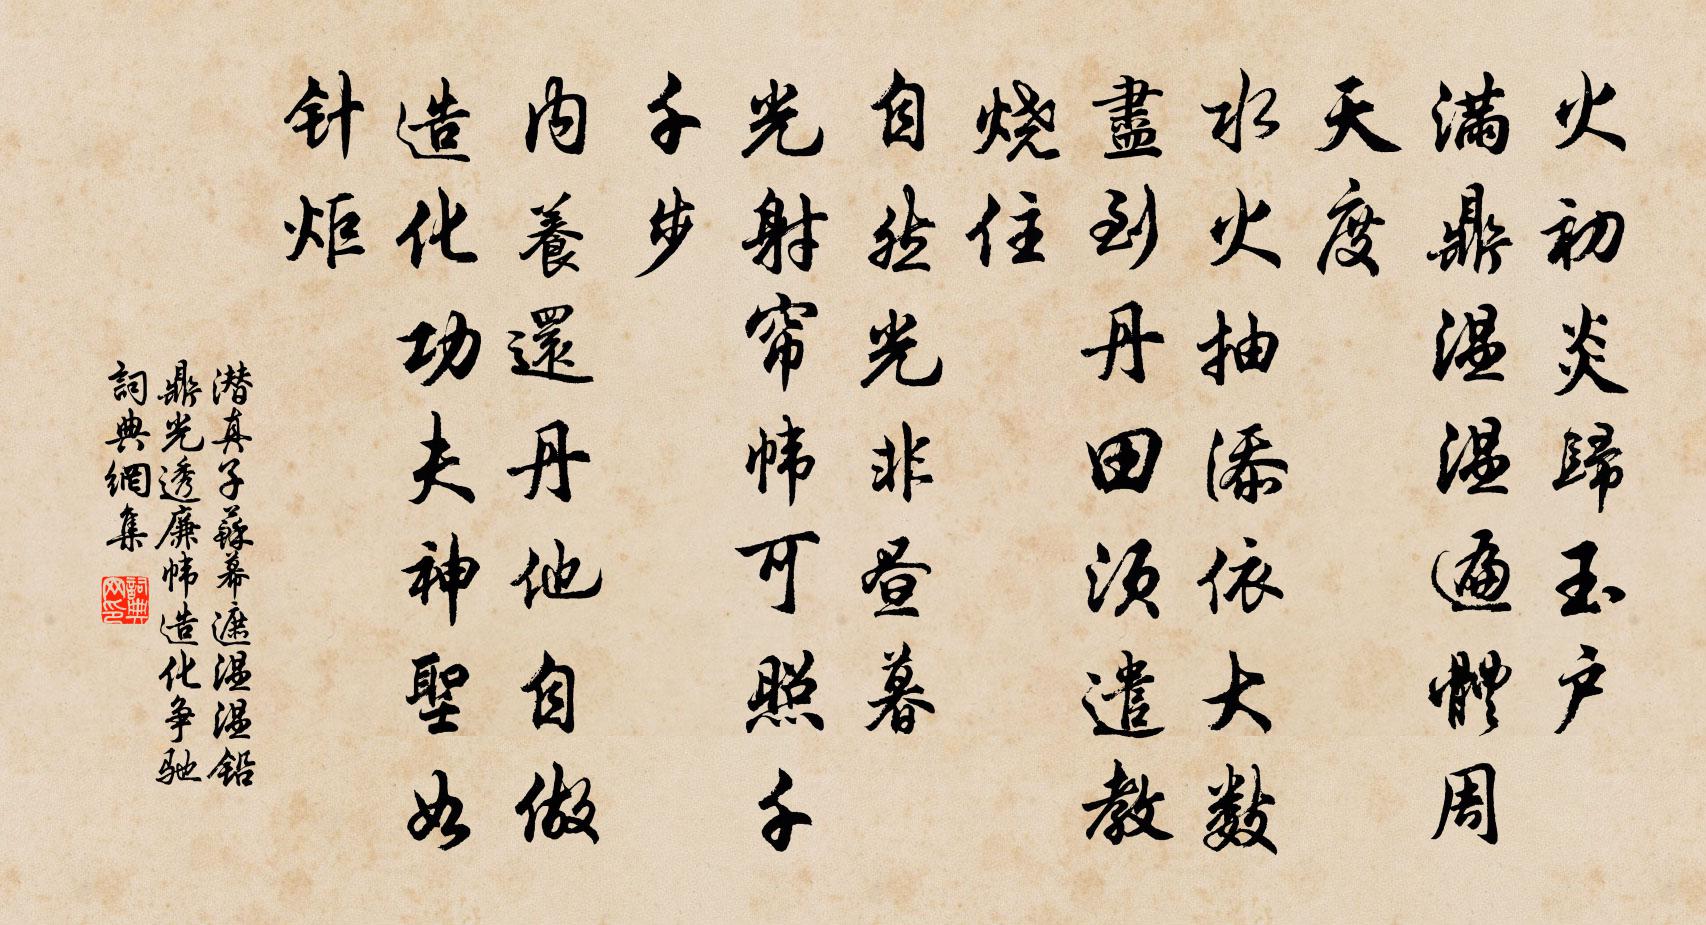 火初炎歸玉户
满鼎温温遍體周
天度
水火抽添依大数
盡到丹田须遣教
烧住
自然光非昼暮
光射帘帏可照千
千步
内養還丹他自做
造化功夫神聖如
针炬
潜真子蘇幕遮温温铅
鼎光透廉帏造化争驰
詞典網集
詞典
网印